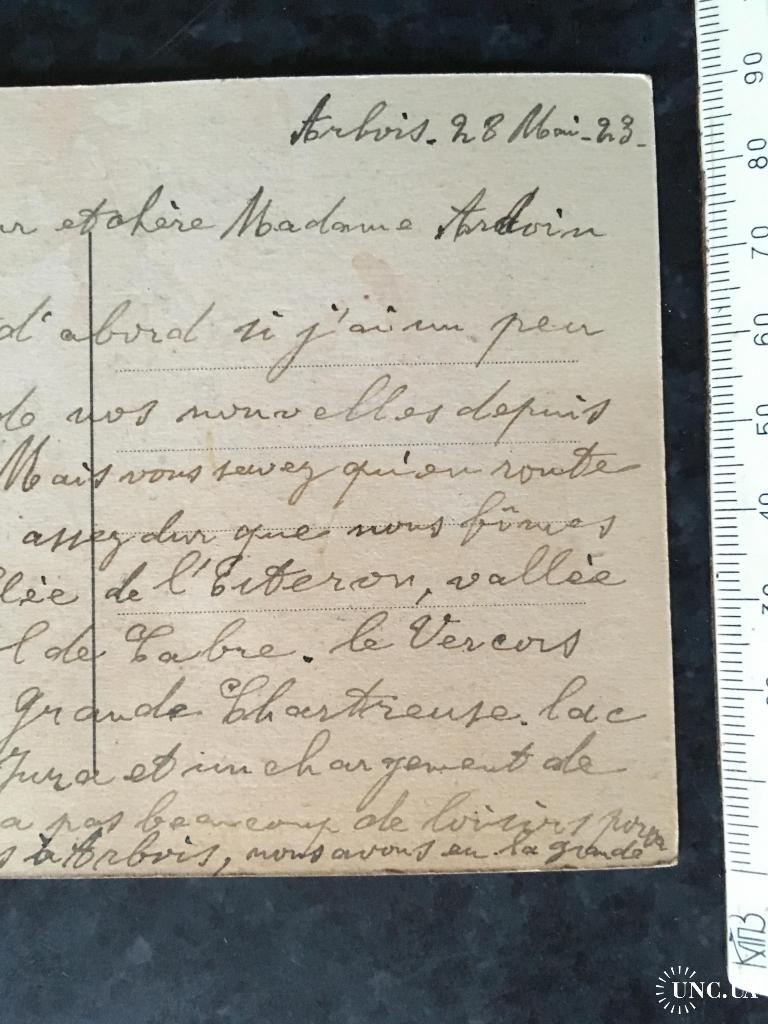 Arbois. 28 Mai - 23 -
ur et chère Madame Ardoin
d'abord si j'ai un peu
de nos nouvelles depuis
Mais vous savez qu'en route
assez dur que nous fîmes
llée de l'Esteron, vallée
l de Cabre. le Vercors
Grande Chartreuse. lac
Jura et un chargement de
a pas beaucoup de loisirs pour
s à Arbois, nous avons eu la grande
90
80
70
60
50
40
30
UNC.UA